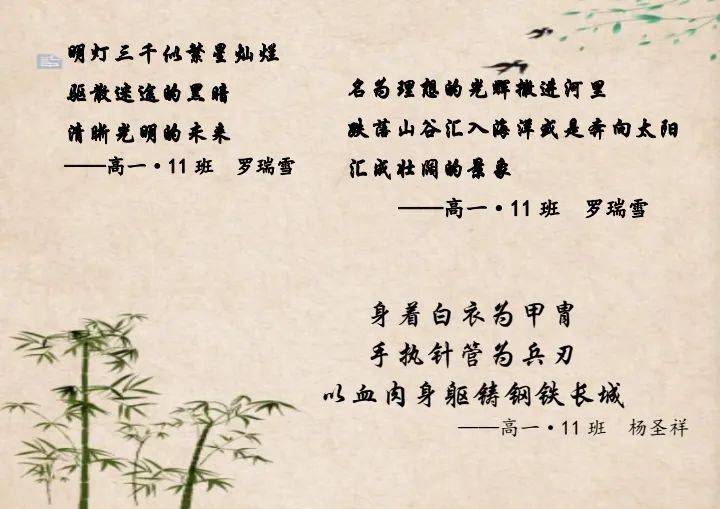 明灯三千似繁星灿烂
驱散迷途的黑暗
清晰光明的未来
——高一·11 班　罗瑞雪
名为理想的光辉撒进河里
跌落山谷汇入海洋或是奔向太阳
汇成壮阔的景象
——高一·11 班　罗瑞雪
身着白衣为甲胄
手执针管为兵刃
以血肉身躯铸钢铁长城
——高一·11 班　杨圣祥